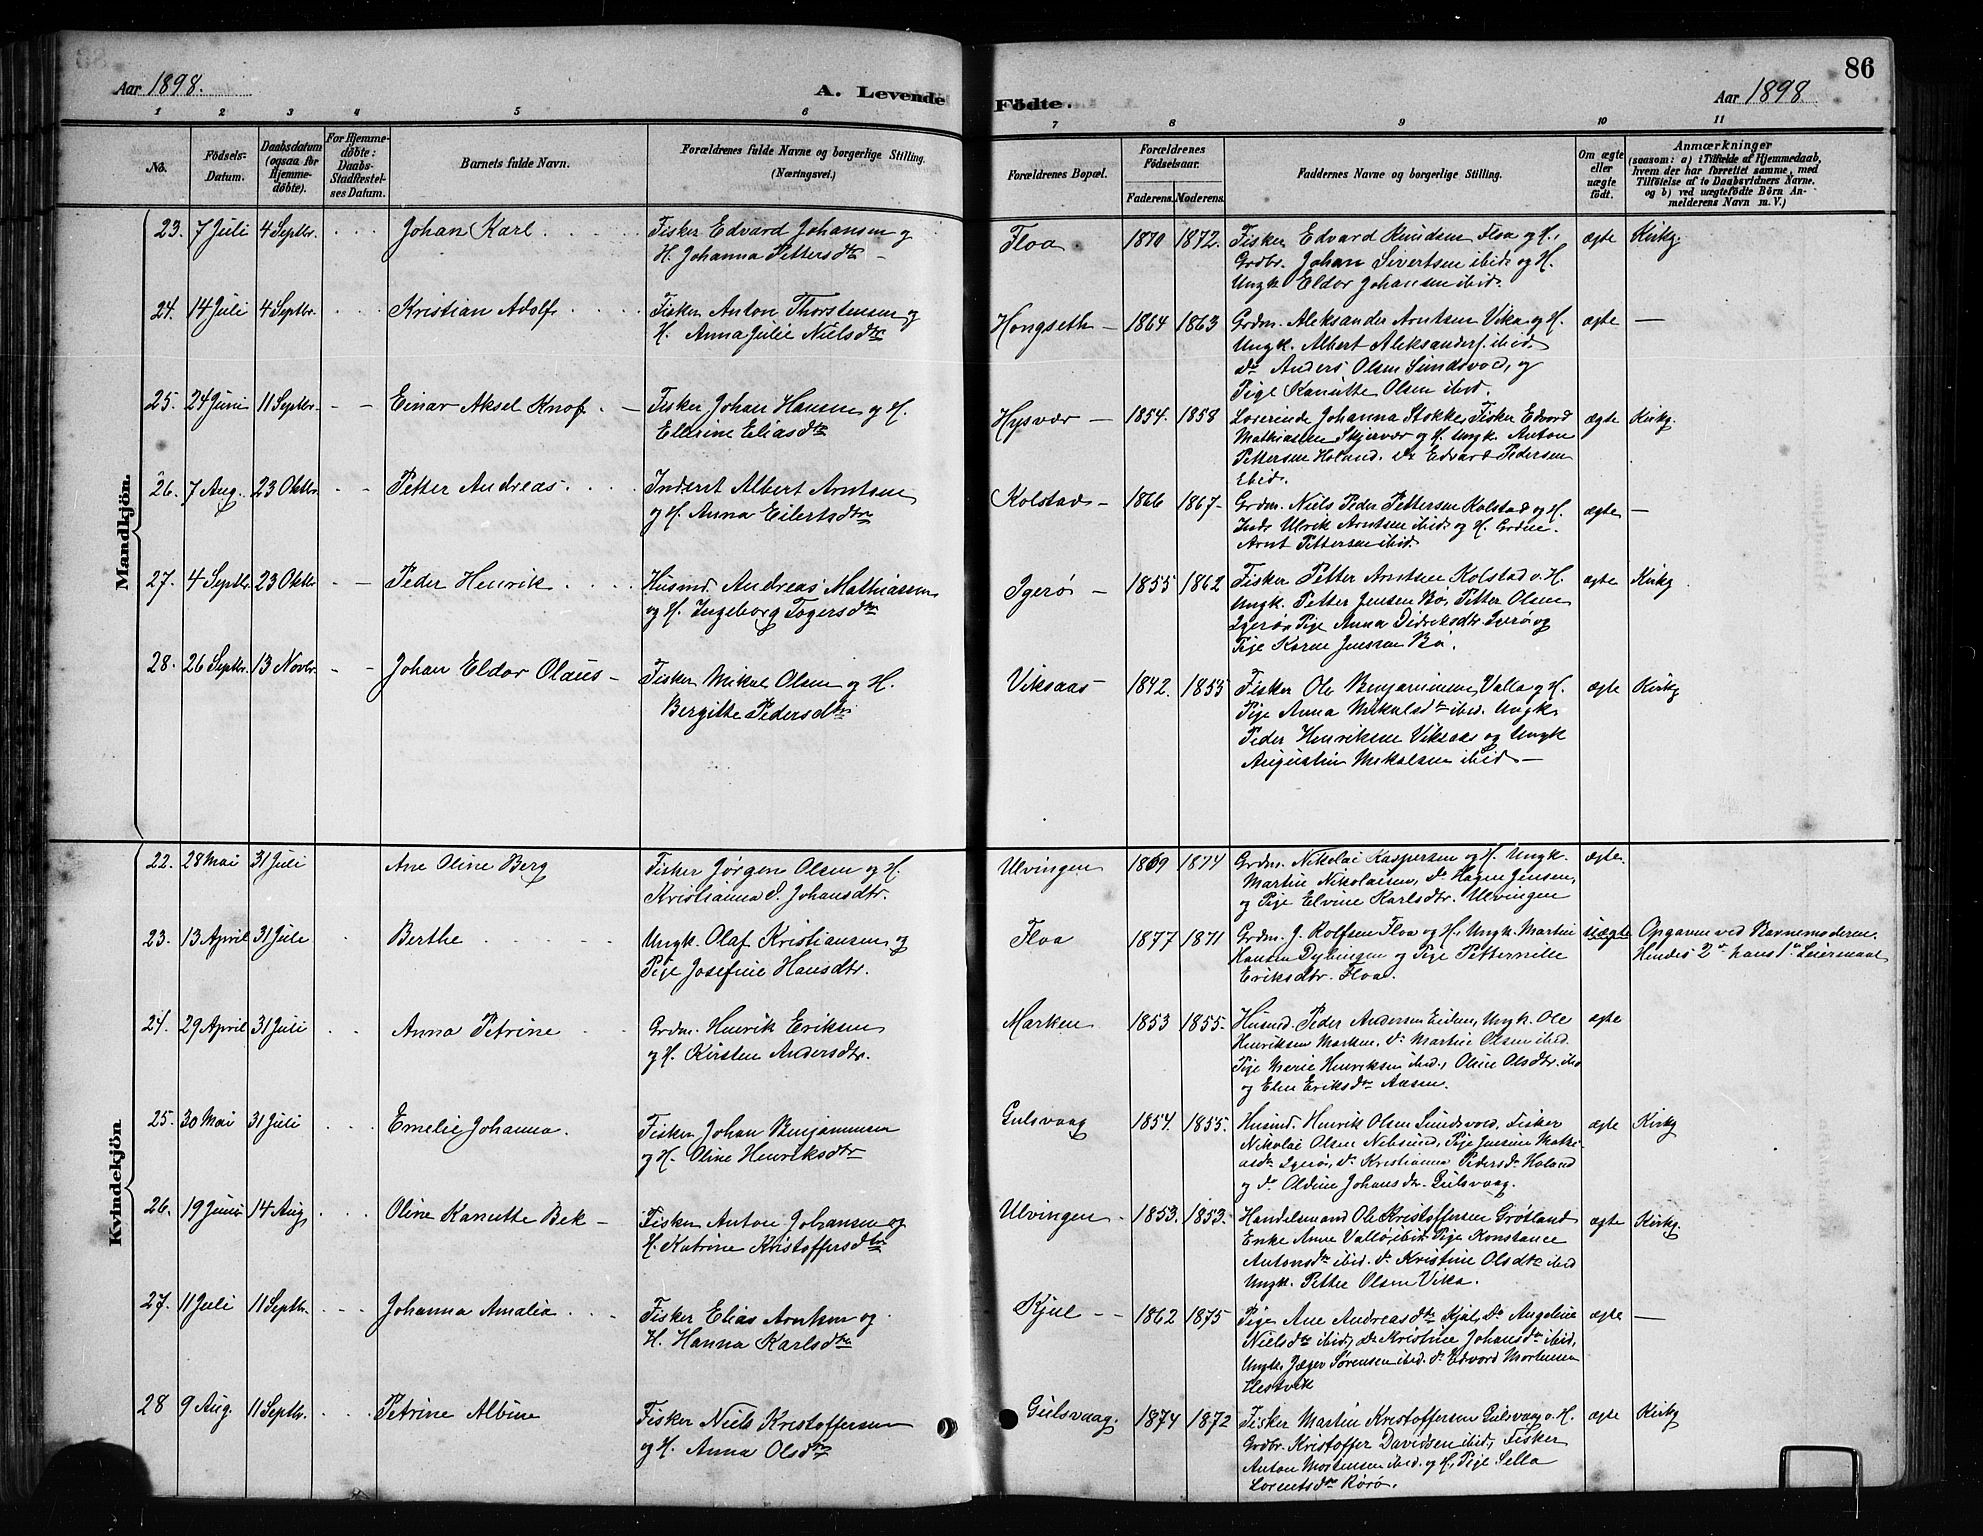 86
Aar 1898. A. Levende Fødte. Aar 1898
1 2 3 4 5 6 7 8 9 10 11
No. Fødsels-Datum. Daabsdatum (ogsaa for Hjemmedøbte). For Hjemmedøbte: Daabs-Stadfæstelses Datum. Barnets fulde Navn. Forældrenes fulde Navne og borgerlige Stilling. (Næringsvei.) Forældrenes Bopæl. Forældrenes Fødselsaar. Faderens. Moderens. Faddernes Navne og borgerlige Stilling. Om ægte eller uægte født. Anmærkninger (saasom: a) i Tilfælde af Hjemmedaab, hvem der har forrettet samme, med Tilføielse af to Daabsvidners Navne, og b) ved uægtefødte Børn Anmelderens Navn m. V.)
Mandkjön.
23. 7 Juli 4 Septbr. Johan Karl Fisker Edvard Johansen og Floa 1870 1872. Fisker Edvard Knudsen Floa og H., ægte Kirkg.
H. Johanna Pettersdtr Grdbr. Johan Sivertsen ibid. og H.
Ungk. Eldor Johansen ibid.
24. 14 Juli 4 Septbr. Kristian Adolf Fisker Anton Thorstensen og Hongseth 1864 1863 Grdm. Aleksander Arntsen Vika og H. ægte —
H. Anna Julie Nielsdtr Ungk. Albert Aleksanders. ibid.
do Anders Olsen Sundsvold, og
Pige Kanutte Olsen ibid.
25. 24 Juni 11 Septbr. Einar Aksel Knof. Fisker Johan Hansen og H. Hysvær 1854. 1858 Lærerinde Johanna Stokke, Fisker Edvard ægte Kirkg.
Ellerine Eliasdtr Mathiassen Skjervær og H. Ungk. Anton
Pettersen Holand. do Edvard Pedersen
ibid.
26. 7 Aug. 23 Oktbr. Petter Andreas. Inderst Albert Arntsen Kolstad 1866 1867 Grdm. Niels Peder Pettersen Kolstad og H. ægte —
og H. Anna Eilertsdtr Indr. Ulrik Arntsen ibid. og H. Grdm.
Arnt Pettersen ibid.
27. 4 Septbr. 23 Oktbr. Peder Henrik Husmd. Andreas Mathiassen Igerø 1855 1862 Fisker Petter Arntsen Kolstad o. H. ægte Kirkg.
og H. Ingeborg Togersdtr Ungk. Petter Jensen Bø, Petter Olsen
Igerø, Pige Anna Didriksdtr. Igerø og
Pige Karen Jensen Bø.
28. 26 Septbr. 13 Novbr. Johan Eldor Olaus Fisker Mikal Olsen og H. Viksaas 1842. 1855 Fisker Ole Benjaminsen Valla og H. ægte Kirkg
Bergitte Pedersdtr Pige Anna Mikalsdtr ibid. Ungk.
Peder Henriksen Viksaas og Ungk
Augustin Mikalsen ibid —
Kvindekjön
22. 28 Mai 31 Juli Ane Oline Berg Fisker Jørgen Olsen og H. Ulvingen 1869 1874 Grdm. Nikolai Kaspersen og H. Ungk. ægte.
Kristianna S. Johansdtr. Martin Nikolaisen, do Hagen Jensen,
og Pige Elvine Karlsdtr. Ulvingen
23. 13 April 31 Juli Berthe Ungk. Olaf Kristiansen og Floa 1877 1871 Grdm. J. Rolfsen Floa og H. Ungk. Martin uægte Opgaven ved Barnemoderen.
Pige Josefine Hansdtr. Hansen Dybingen og Pige Petternille Hendes 2det hans 1ste Leiermaal
Eriksdtr. Floa.
24. 29 April 31 Juli Anna Petrine Grdm. Henrik Eriksen Marken 1853 1855. Husmd. Peder Andersen Eilen, Ungk. Ole ægte
og H. Kirsten Andersdtr. Henriksen Marken, do Martin Olsen ibid.
Pige Merie Henriksen ibid., Oline Olsdtr. ibid
og Elen Eriksdtr Aasen.
25. 30 Mai 31 Juli Emelie Johanna. Fisker Johan Benjaminsen Gulsvaag 1854. 1855. Husmd. Henrik Olsen Sundsvold, Fisker ægte Kirkg
og H. Oline Henriksdtr Nikolai Olsen Nebsund, Pige Jensine Mathi-
asdtr Igerø, do Kristianna Pedersdtr Holand
og do Oldine Johansdtr. Gulsvaag.
26. 19 Juni 14 Aug Oline Kanutte Bek Fisker Anton Johansen og Ulvingen 1853. 1853. Handelsmand Ole Kristoffersen Grøtland ægte Kirkg.
H. Katrine Kristoffersdtr Enke Anne Valla, ibid. Pige Konstance
Antonsdtr ibid. do Kristine Olsdtr ibid
Ungk. Petter Olsen Vika.
27. 11 Juli 11 Septbr. Johanna Amalia Fisker Elias Arntsen og Kjul 1862 1875 Pige Ane Andreasdtr Kjul, do Angeline ægte —
H. Hanna Karlsdtr Nielsdtr ibid, do Kristine Johansdtr ibid,
Ungk. Jæger Sørensen ibid. do Edvard Mortensen
Hestvik
28 9 Aug. 11 Septbr. Petrine Albine Fisker Niels Kristoffersen Gulsvaag. 1874 1872 Fisker Martin Kristoffersen Gulsvaag o. H. ægte Kirkg
og H. Anna Olsdtr Grdbr. Kristoffer Davidsen ibid, Fisker
Anton Mortensen ibid. og H., Pige Sella
Lorentsdtr Rørø.